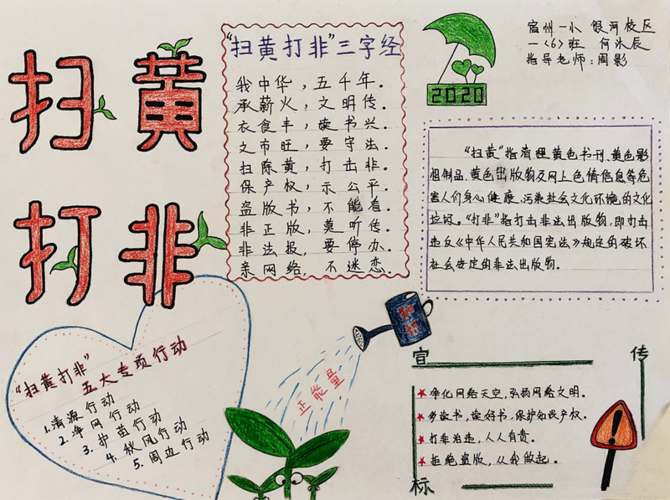 扫黄
打非
"扫黄打非"三字经
我中华，五千年．
承薪火，文明传．
衣食丰，读书兴．
文市旺，要守法．
扫陈黄，打击非．
保产权，示公平．
盗版书，不能看．
非正版，莫听传．
非法报，要停办．
亲网络，不迷恋．
2020
宿州一小 银河校区
一〈6〉班 何沐辰
指导老师：周影
"扫黄"指清理黄色书刊、黄色影
相制品、黄色出版物及网上色情信息等危
害人们身心健康、污染社会文化环境的文化
垃圾。"打非"指打击非法出版物，即打击
违反《中华人民共和国宪法》规定的破坏
社会安定的非法出版物．
"扫黄打非"
五大专项行动
1.清源行动
2.净网行动
3.护苗行动
4.秋风行动
5.固边行动
正能量
宣传
★净化网络天空，弘扬网络文明．
★多读书，读好书，保护知识产权．
★打非治违，人人有责．
★拒绝盗版，从我做起．
标